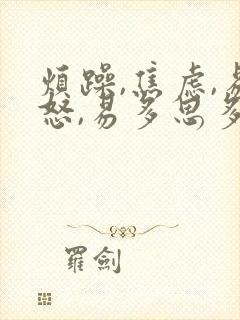 煩躁,焦虑,易
怒,易多思多
羅劍